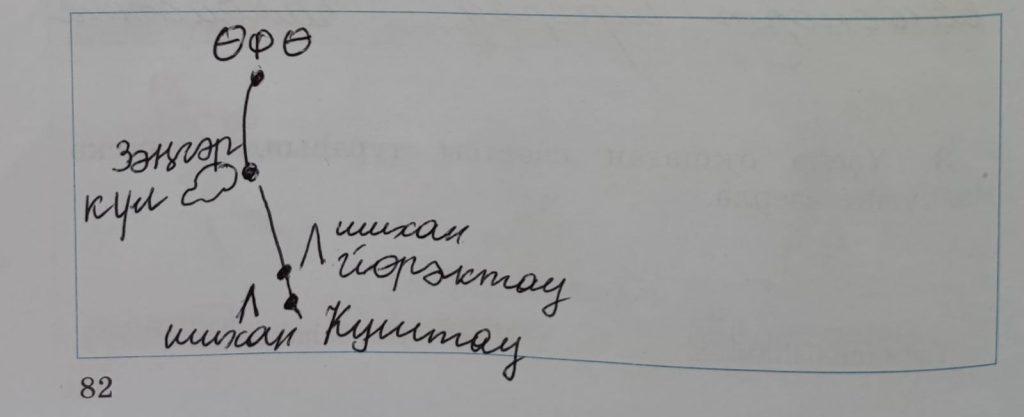 ӨФӨ
Зәңгәр
күл
шихан
Йөрәктау
шихан Куштау
82